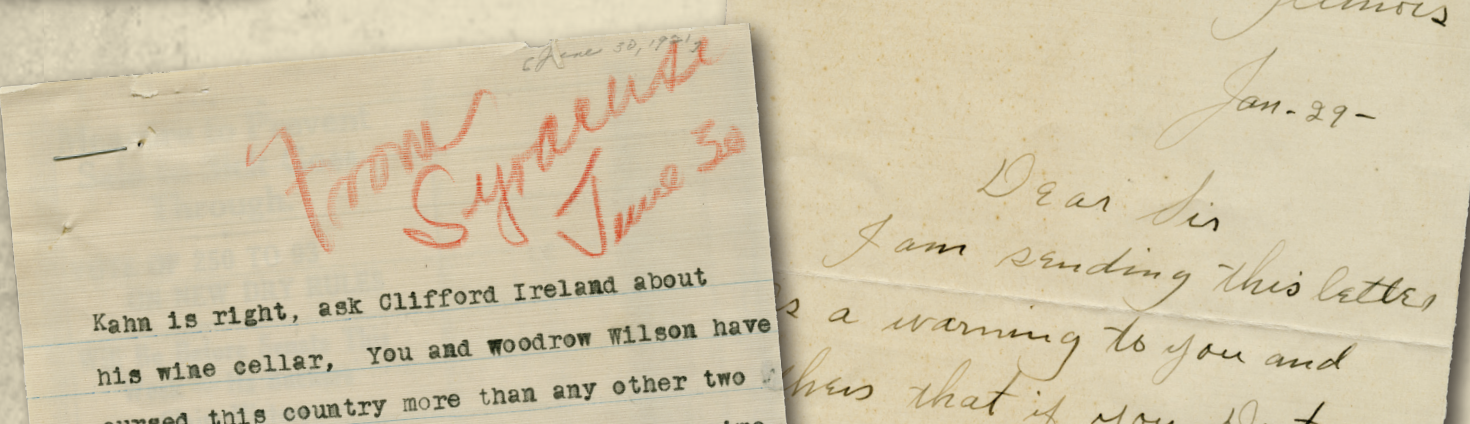 (June 30, 1921)
From
Syracuse
June 30
Kahn is right, ask Clifford Ireland about
his wine cellar, You and Woodrow Wilson have
cursed this country more than any other two
Illinois
Jan-29-
Dear Sir
I am sending this letter
as a warning to you and
that if you